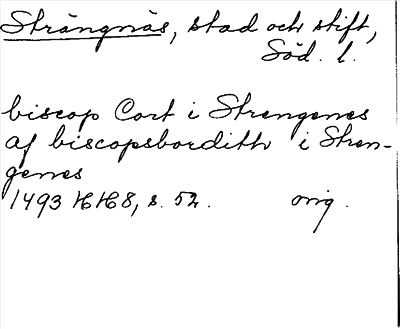 Strängnäs, stad och stift,
Söd. l.
biscop Cort i Strengenes
af biscopsbordith i Stren-
genes
1493 HH8, s. 52. orig.